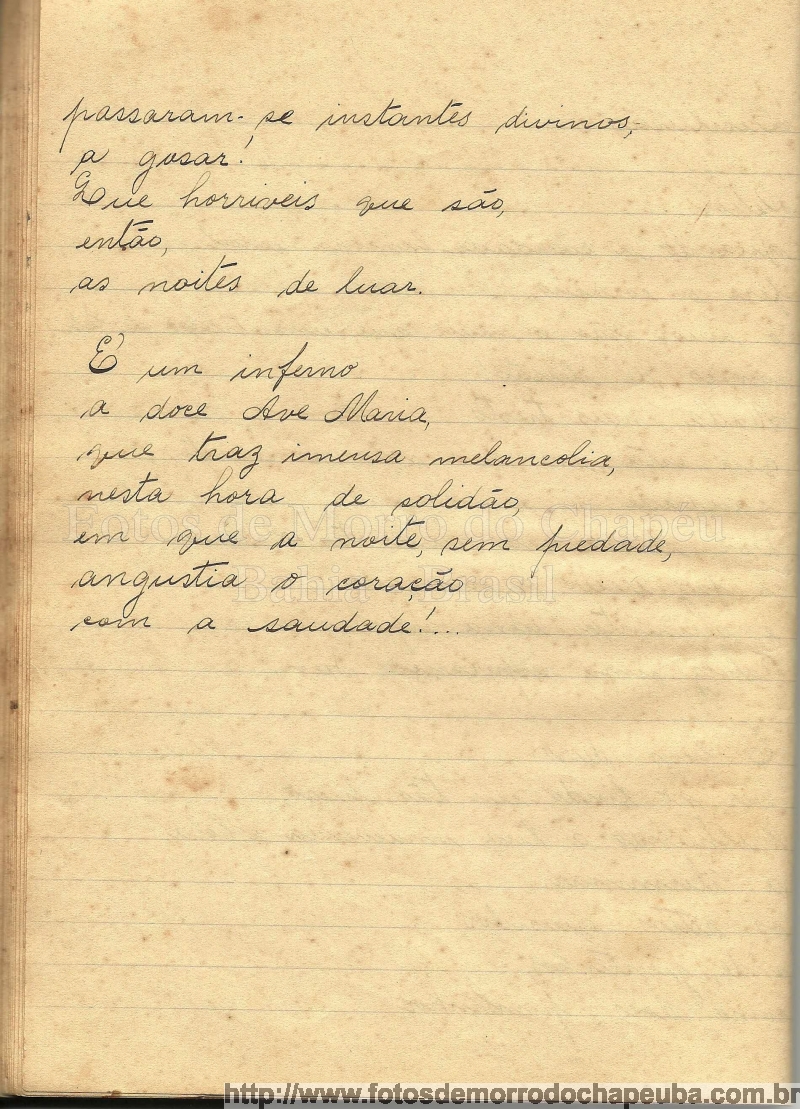 passaram-se instantes divinos,
a gosar!
Que horriveis que são,
então,
as noites de luar.
É um inferno
a doce Ave Maria,
que traz imensa melancolia,
nesta hora de solidão,
em que a noite, sem piedade,
angustia o coração
com a saudade!...
Fotos de Morro do Chapéu
Bahia - Brasil
http://www.fotosdemorrodochapeuba.com.br